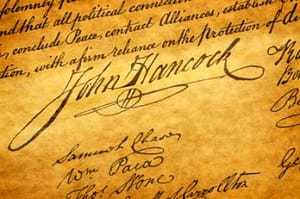 solemnly
and that all political connection
conclude Peace, contract Alliances, establish
tion, with a firm reliance on the Protection of d
John Hancock
Samuel Chase
Wm Paca
Thos Stone
Carrollton